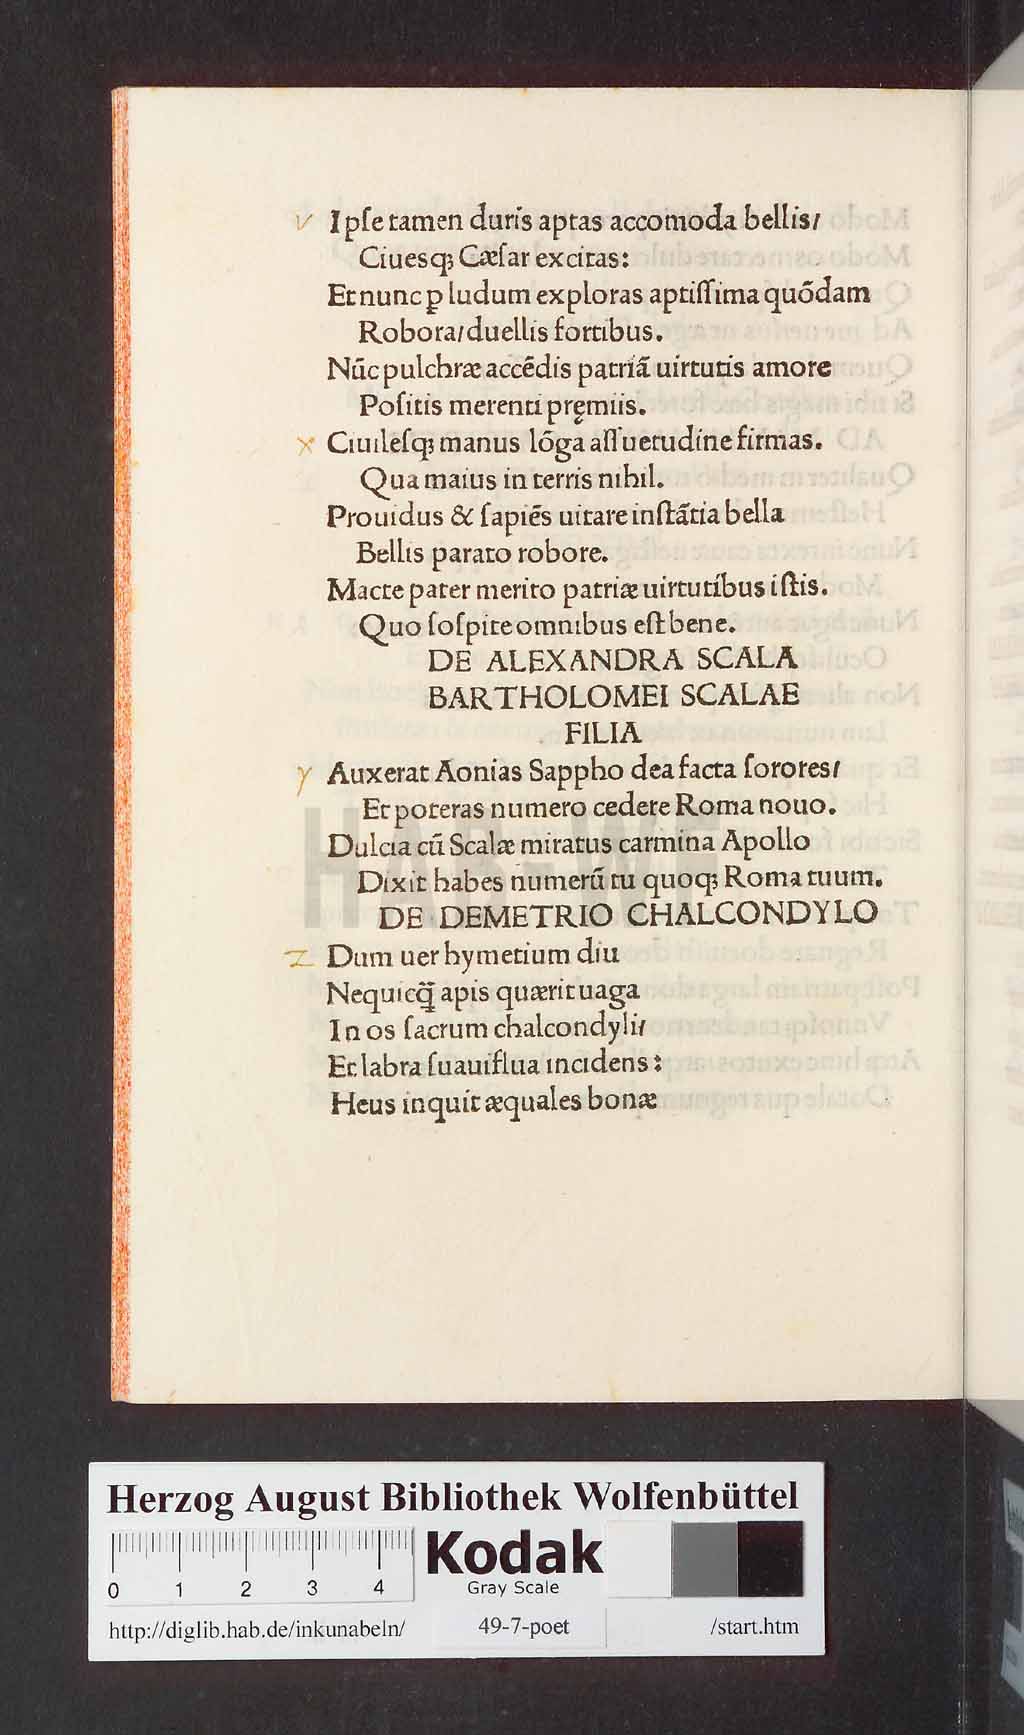 V Ipſe tamen duris aptas accomoda bellis/
Ciuesqꝫ Cæſar excitas:
Et nunc ꝑ ludum exploras aptiſſima quōdam
Robora/ duellis fortibus.
Nūc pulchræ accēdis patriā uirtutis amore
Poſitis merenti pręmiis.
X Ciuileſqꝫ manus lōga aſſuetudine firmas.
Qua maius in terris nihil.
Prouidus & ſapiēs uitare inſtātia bella
Bellis parato robore.
Macte pater merito patriæ uirtutibus iſtis.
Quo ſoſpite omnibus eſt bene.
DE ALEXANDRA SCALA
BARTHOLOMEI SCALAE
FILIA
y Auxerat Aonias Sappho dea facta ſorores/
Et poteras numero cedere Roma nouo.
Dulcia cū Scalæ miratus carmina Apollo
Dixit habes numerū tu quoqꝫ Roma tuum.
DE DEMETRIO CHALCONDYLO
Z Dum uer hymetium diu
Nequicq̄ apis quærit uaga
In os ſacrum chalcondyli/
Et labra ſuauiflua incidens:
Heus inquit æquales bonæ
HAB-WF
Herzog August Bibliothek Wolfenbüttel
0 1 2 3 4
Kodak
Gray Scale
http://diglib.hab.de/inkunabeln/ 49-7-poet /start.htm